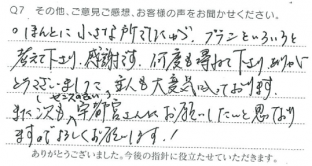 Q7 その他、ご意見ご感想、お客様の声をお聞かせください。
○ほんとに小さな所でしたが、プランといろいろと
考えて下さり、感謝です。何度も尋ねて下さりありが
とうございまして、主人も大変気に入っております。
また次も、宇都宮さんにお願いしたいと思っており
ますのでよろしくお願いします!
ありがとうございました。今後の指針に役立たせていただきます。